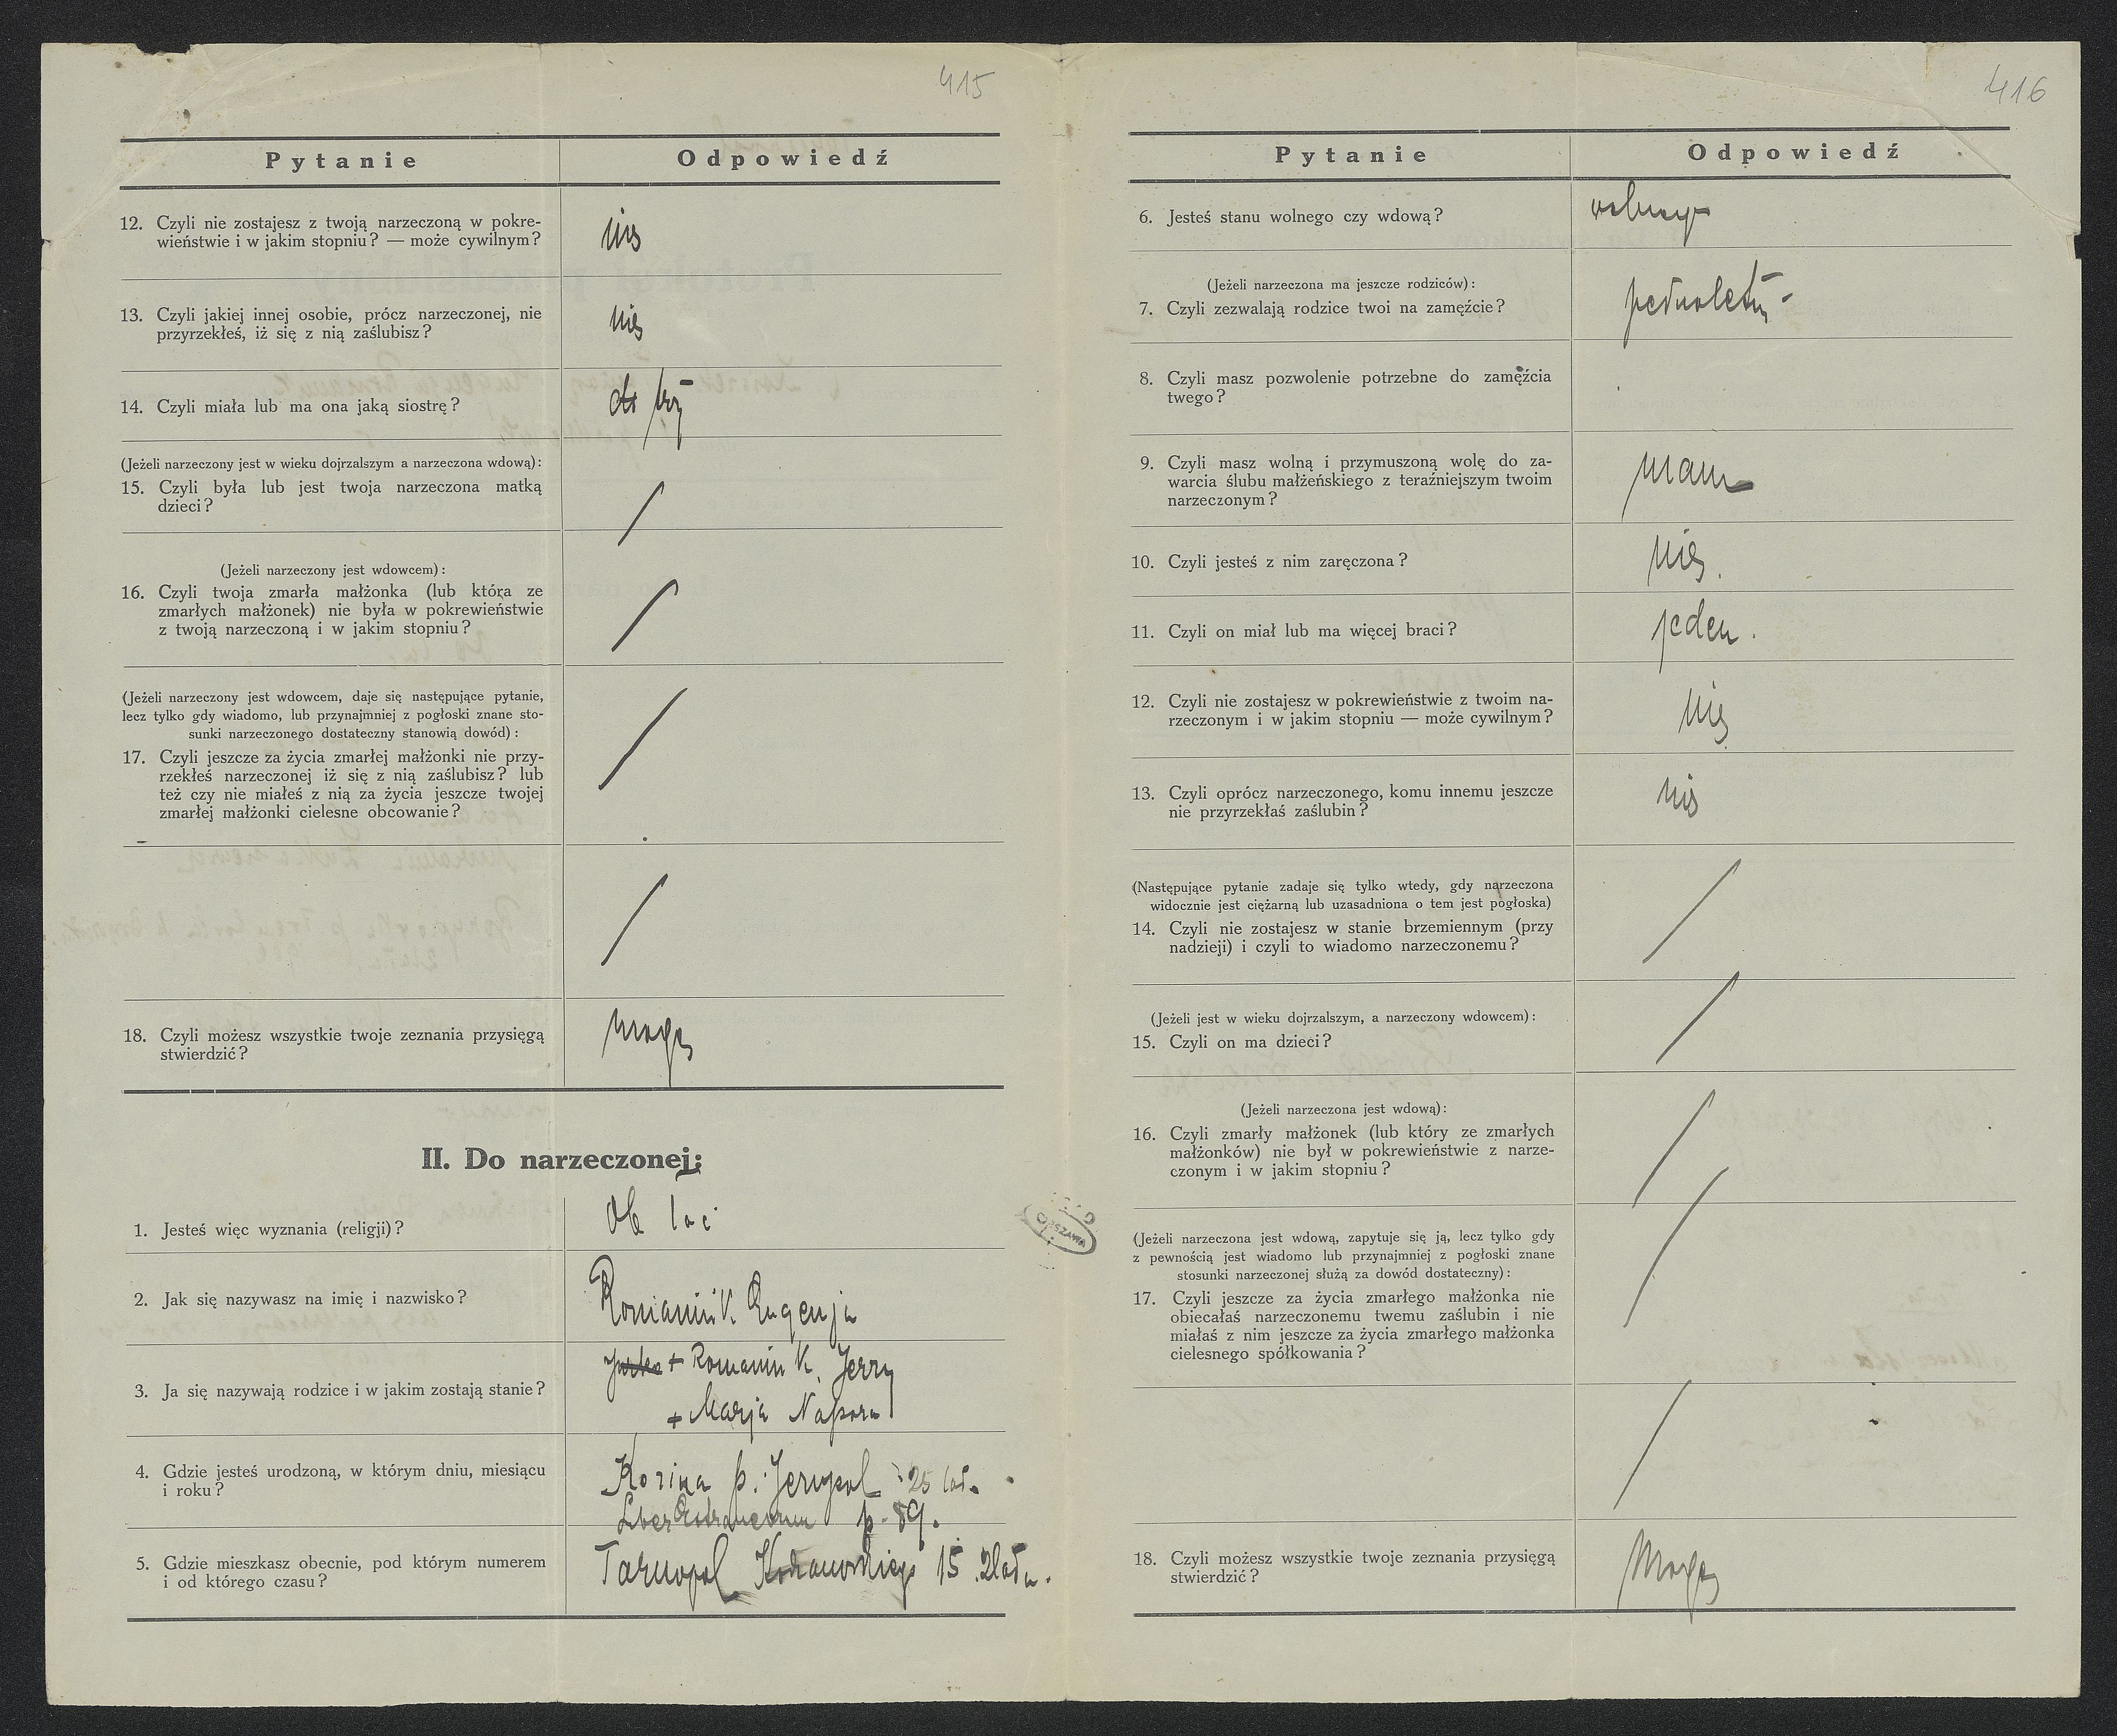 415
Pytanie
Odpowiedź
12. Czyli nie zostajesz z twoją narzeczoną w pokre-
wieństwie i w jakim stopniu? — może cywilnym?
nie
13. Czyli jakiej innej osobie, prócz narzeczonej, nie
przyrzekłeś, iż się z nią zaślubisz?
nie
14. Czyli miała lub ma ona jaką siostrę?
trzy
(Jeżeli narzeczony jest w wieku dojrzalszym a narzeczona wdową):
15. Czyli była lub jest twoja narzeczona matką
dzieci?
(Jeżeli narzeczony jest wdowcem):
16. Czyli twoja zmarła małżonka (lub która ze
zmarłych małżonek) nie była w pokrewieństwie
z twoją narzeczoną i w jakim stopniu?
(Jeżeli narzeczony jest wdowcem, daje się następujące pytanie,
lecz tylko gdy wiadomo, lub przynajmniej z pogłoski znane sto-
sunki narzeczonego dostateczny stanowią dowód):
17. Czyli jeszcze za życia zmarłej małżonki nie przy-
rzekłeś narzeczonej iż się z nią zaślubisz? lub
też czy nie miałeś z nią za życia jeszcze twojej
zmarłej małżonki cielesne obcowanie?
18. Czyli możesz wszystkie twoje zeznania przysięgą
stwierdzić?
mogę
II. Do narzeczonej:
1. Jesteś więc wyznania (religji)?
ob łac
2. Jak się nazywasz na imię i nazwisko?
Romaniuk Eugenja
3. Ja się nazywają rodzice i w jakim zostają stanie?
+ Romaniuk Jerzy
+ Marja
4. Gdzie jesteś urodzoną, w którym dniu, miesiącu
i roku?
p. Jezupol 25 lat.
Liber p. 89.
5. Gdzie mieszkasz obecnie, pod którym numerem
i od którego czasu?
Tarnopol 15. 2 lata.
WARSZAWA
416
Pytanie
Odpowiedź
6. Jesteś stanu wolnego czy wdową?
wolnego
(Jeżeli narzeczona ma jeszcze rodziców):
7. Czyli zezwalają rodzice twoi na zamęźcie?
pełnoletn
8. Czyli masz pozwolenie potrzebne do zamęźcia
twego?
9. Czyli masz wolną i przymuszoną wolę do za-
warcia ślubu małżeńskiego z teraźniejszym twoim
narzeczonym?
mam
10. Czyli jesteś z nim zaręczona?
nie.
11. Czyli on miał lub ma więcej braci?
jeden.
12. Czyli nie zostajesz w pokrewieństwie z twoim na-
rzeczonym i w jakim stopniu — może cywilnym?
nie
13. Czyli oprócz narzeczonego, komu innemu jeszcze
nie przyrzekłaś zaślubin?
nie
(Następujące pytanie zadaje się tylko wtedy, gdy narzeczona
widocznie jest ciężarną lub uzasadniona o tem jest pogłoska)
14. Czyli nie zostajesz w stanie brzemiennym (przy
nadzieji) i czyli to wiadomo narzeczonemu?
(Jeżeli jest w wieku dojrzalszym, a narzeczony wdowcem):
15. Czyli on ma dzieci?
(Jeżeli narzeczona jest wdową):
16. Czyli zmarły małżonek (lub który ze zmarłych
małżonków) nie był w pokrewieństwie z narze-
czonym i w jakim stopniu?
(Jeżeli narzeczona jest wdową, zapytuje się ją, lecz tylko gdy
z pewnością jest wiadomo lub przynajmniej z pogłoski znane
stosunki narzeczonej służą za dowód dostateczny):
17. Czyli jeszcze za życia zmarłego małżonka nie
obiecałaś narzeczonemu twemu zaślubin i nie
miałaś z nim jeszcze za życia zmarłego małżonka
cielesnego spółkowania?
18. Czyli możesz wszystkie twoje zeznania przysięgą
stwierdzić?
Mogę